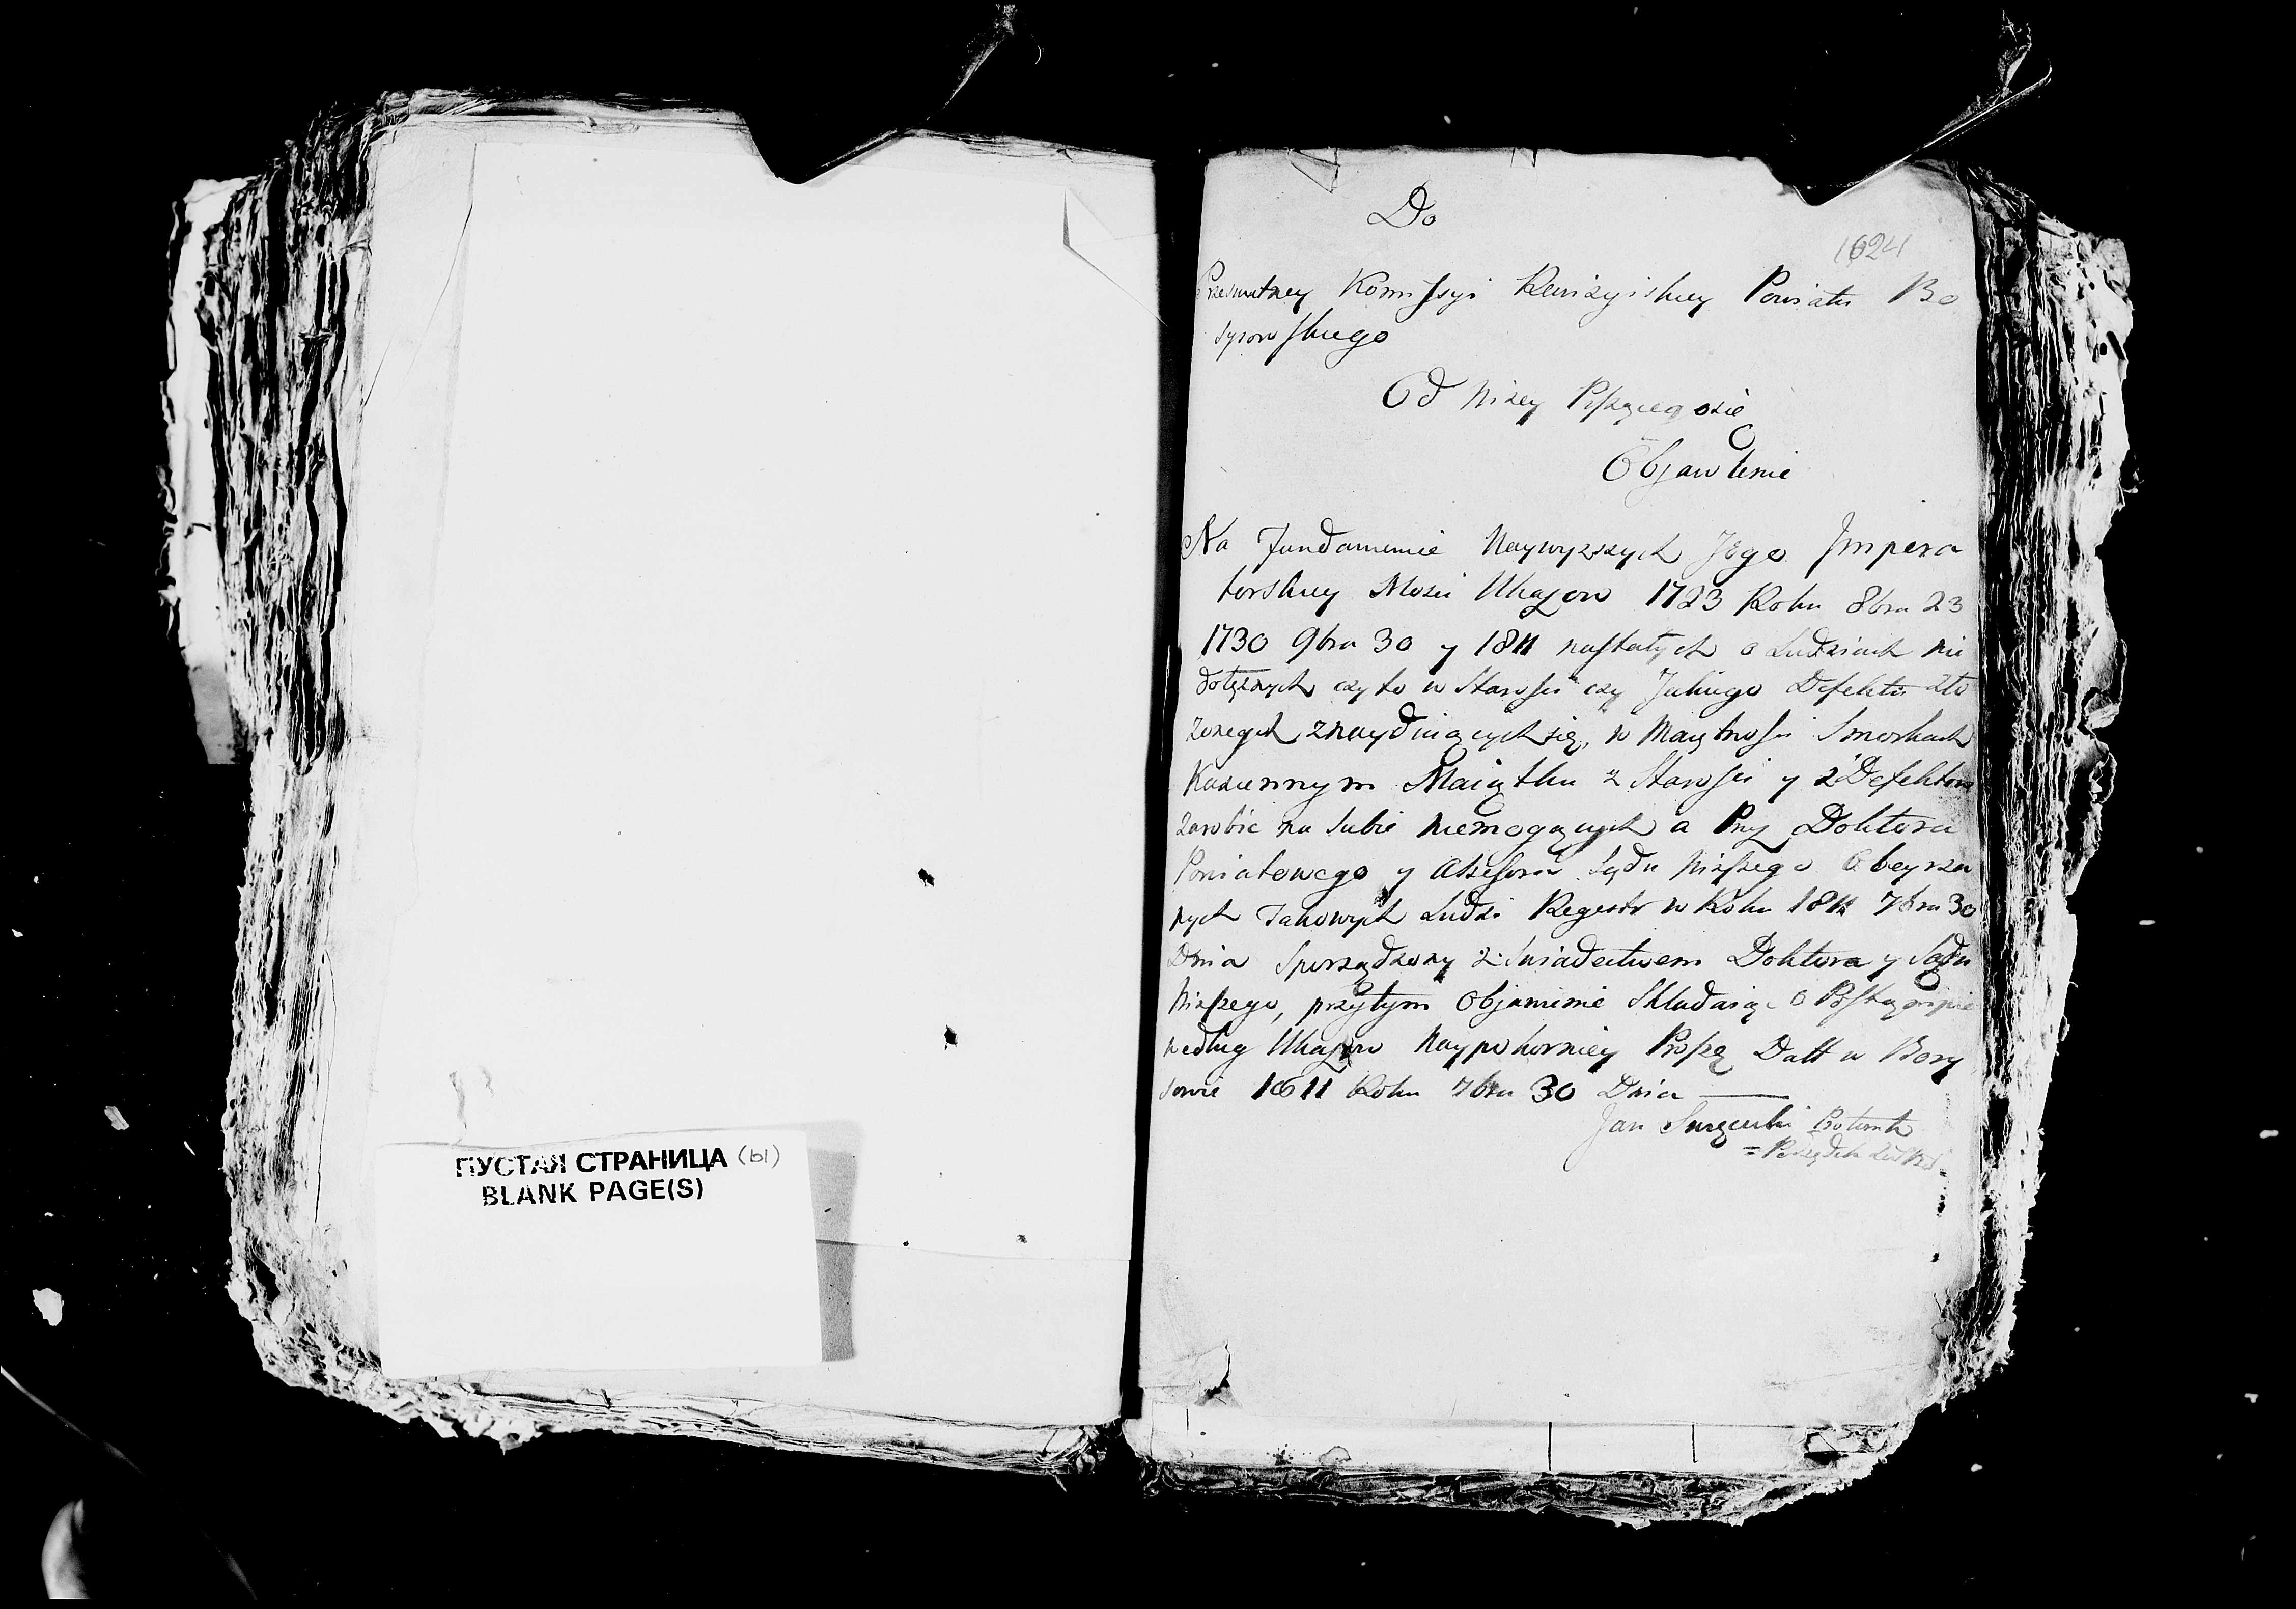 ПУСТАЯ СТРАНИЦА (ы)
BLANK PAGE(S)
Do
1624
Prześwitney Komissyi Rewizyiskiey Powiatu Bo
rysowskiego
Od Niżey Piszącegosię
Objawlenie
Na Fundamencie Naywyższych Jego Impera
torskiey Mości Ukazow 1723 Roku 8bra 23
1730 9bra 30 y 1811 nastałych o Ludziach nie
dołężnych czyto w Starości czy Jakiego Defektu zło
żonych znayduiących się, w Maiętności Smorkach
Kaziennym Maiątku z Starości y z Defektow
zarobić na siebie niemogących a Przez Doktora
Powiatowego y Asesora Sądu Niższego Obeyrza
nych Takowych Ludzi Regestr w Roku 1811 7bra 30
Dnia Sporządzony z Swiadectwem Doktora y Sądu
Niższego, przytym Objawienie Składaiąc o
według Ukazow Naypokorniey Proszę Datt w Bory
sowie 1811 Roku 7bra 30 Dnia
Jan